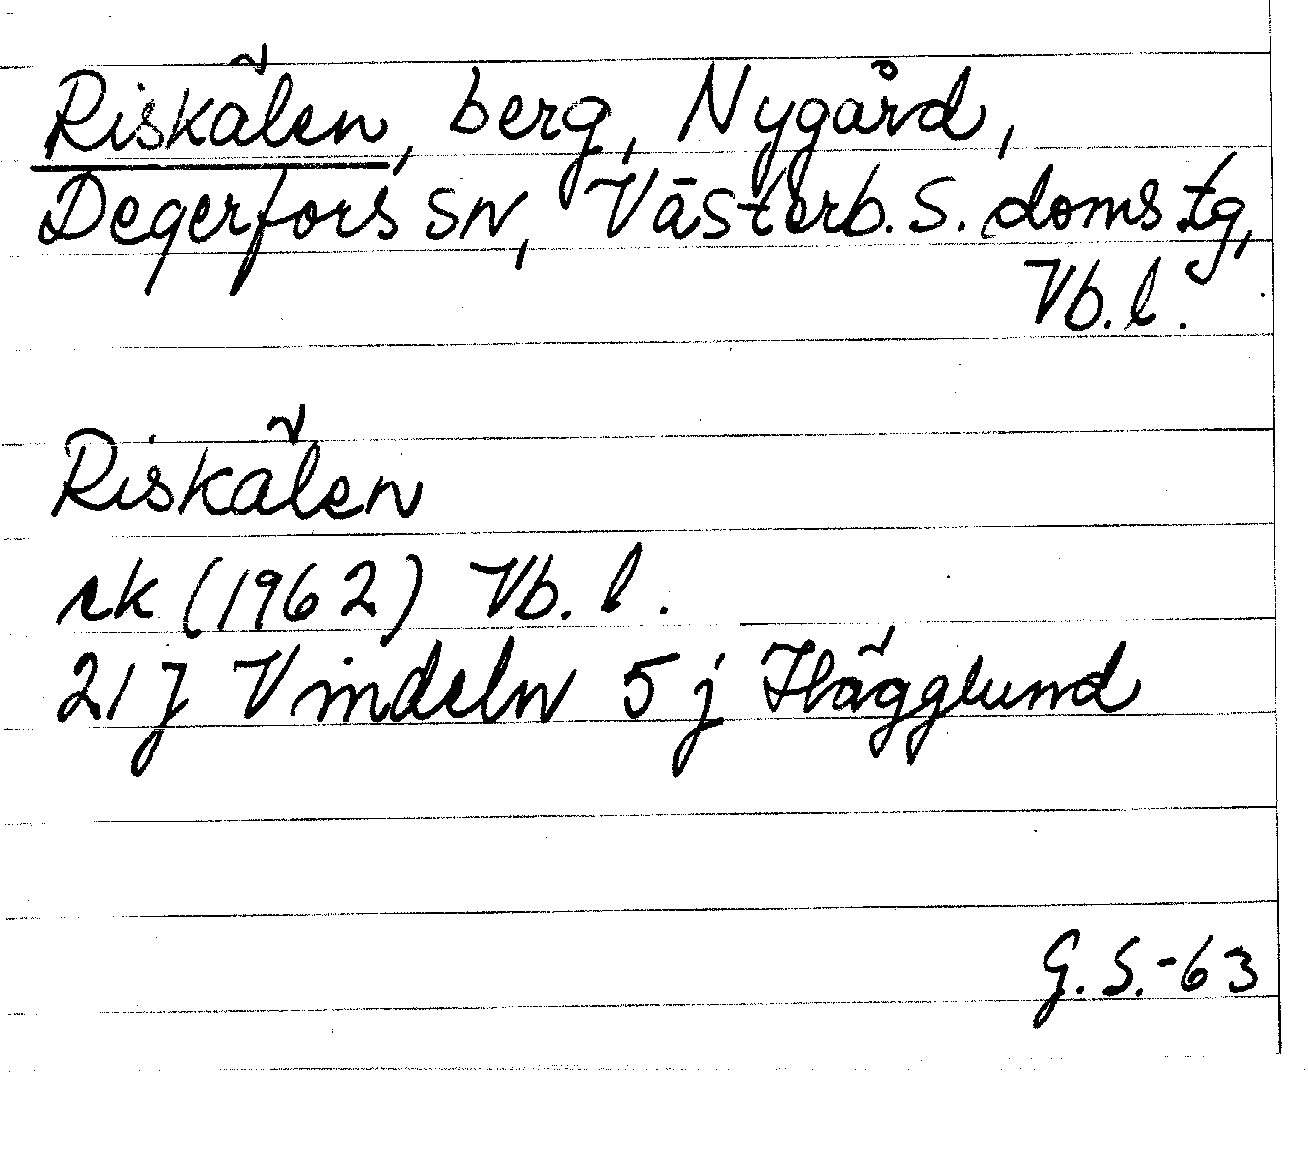 Riskälen, berg, Nygård,
Degerfors sn, Västerb. S. doms tg,
Vb. l.
Riskälen
rk (1962) Vb. l.
21 J Vindeln 5 j Hägglund
G. S. -63